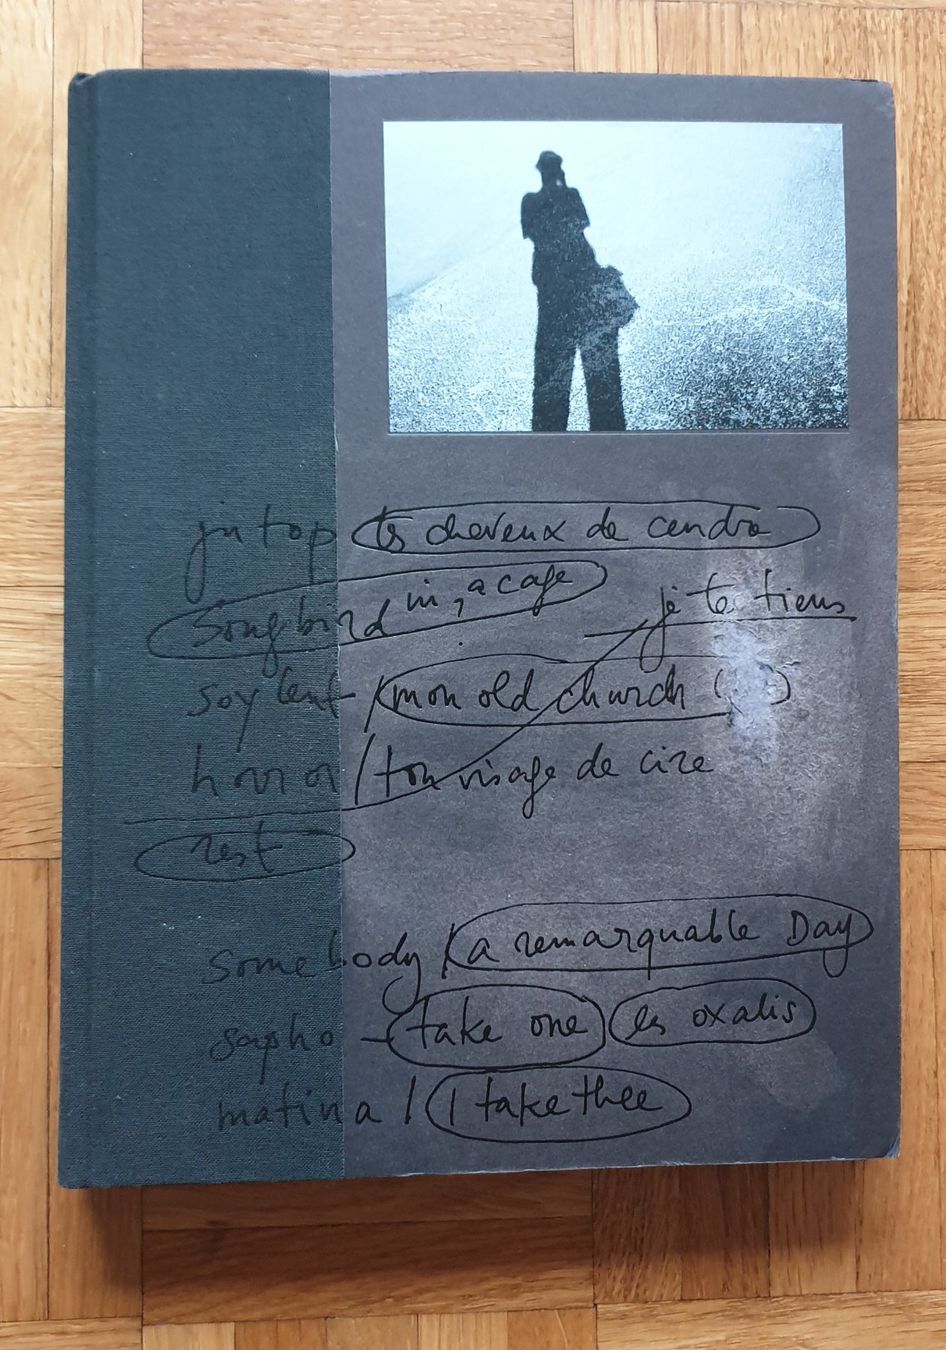 jutop ts cheveux de cendre
songbird in, a cage
je te tiens
soylent / mon old church
horror / ton visage de cire
rest
somebody / a remarquable Day
sapho - take one les oxalis
matina / I take thee